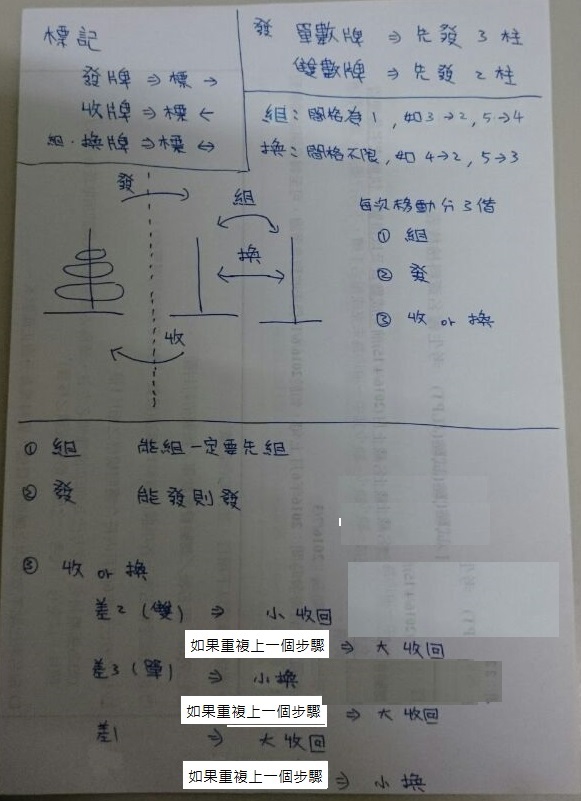 標記
發牌 ⇒ 標 →
收牌 ⇒ 標 ←
組.換牌 ⇒ 標 ↔
發 單數牌 ⇒ 先發3柱
雙數牌 ⇒ 先發2柱
組：間格為1，如3→2，5→4
換：間格不限，如4→2，5→3
發
組
換
收
每次移動分3階
① 組
② 發
③ 收 or 換
① 組 能組一定要先組
② 發 能發則發
③ 收 or 換
差2(雙) ⇒ 小收回
如果重複上一個步驟 ⇒ 大收回
差3(單) ⇒ 小換
如果重複上一個步驟 ⇒ 大收回
差1 ⇒ 大收回
如果重複上一個步驟 ⇒ 小換